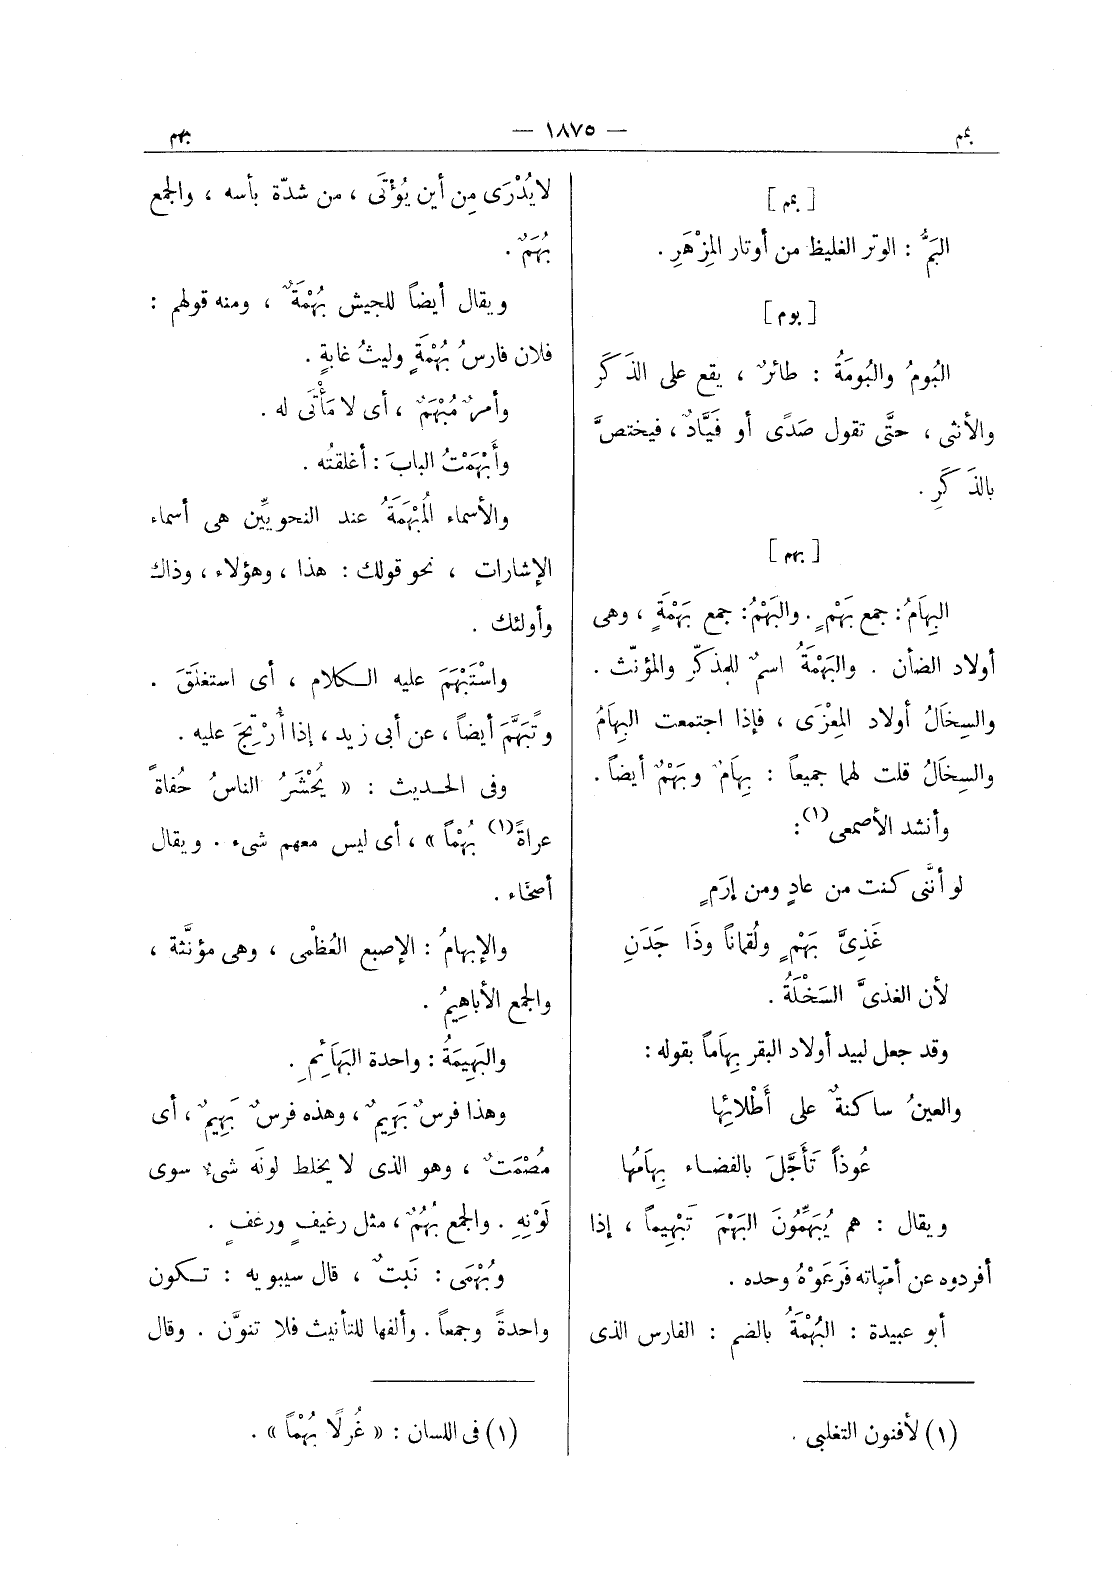 بمم
— ١٨٧٥ —
بهم
[ بمم ]
البَمُّ : الوتر الغليظ من أوتار المِزْهَرِ .
[ بوم ]
البُومُ والبُومَةُ : طائرٌ ، يقع على الذَكَرِ
والأنثى ، حتَّى تقول صَدًى أو فَيَّادٌ ، فيختصّ
بالذَكَرِ .
[ بهم ]
البِهَامُ : جمع بَهْمٍ . والبَهْمُ : جمع بَهْمَةٍ ، وهى
أولاد الضأن . والبَهْمَةُ اسمٌ للمذكّر والمؤنّث .
والسِخَالُ أولاد المِعْزَى ، فإذا اجتمعت البِهَامُ
والسِخَالُ قلت لهما جميعاً : بِهَامٌ وبَهْمٌ أيضاً .
وأنشد الأصمعى(١) :
لو أنَّنى كنت من عادٍ ومن إرَمٍ
غَذِىَّ بَهْمٍ ولُقماناً وذَا جَدَنِ
لأن الغذىَّ السَخْلَةُ .
وقد جعل لبيد أولاد البقر بِهَاماً بقوله :
والعينُ ساكنةٌ على أَطْلائِها
عُوذاً تَأَجَّلَ بالفضاء بِهَامُها
ويقال : هم يُبَهِّمُونَ البَهْمَ تَبْهِيماً ، إذا
أفردوه عن أمّهاته فَرَعَوْهُ وحده .
أبو عبيدة : البُهْمَةُ بالضم : الفارس الذى
(١) لأفنون التغلبى .
لا يُدْرَى مِن أين يُؤْتَى ، من شدّة بأسه ، والجمع
بُهَمٌ .
ويقال أيضاً للجيش بُهْمَةٌ ، ومنه قولهم :
فلان فارسُ بُهْمَةٍ وليثُ غابةٍ .
وأمرٌ مُبْهَمٌ ، أى لا مَأْتَى له .
وأَبْهَمْتُ البابَ : أغلقتُه .
والأسماء المُبْهَمَةُ عند النحويِّين هى أسماء
الإشارات ، نحو قولك : هذا ، وهؤلاء ، وذاك
وأولئك .
واسْتَبْهَمَ عليه الكلام ، أى استغلَقَ .
وتَبَهَّمَ أيضاً ، عن أبى زيد ، إذا أُرْتِجَ عليه .
وفى الحديث : « يُحْشَرُ الناسُ حُفاةً
عراةً(١) بُهْماً » ، أى ليس معهم شىء . ويقال
أصحّاء .
والإبهامُ : الإصبع العُظْمى ، وهى مؤنَّثة ،
والجمع الأباهِيمُ .
والبَهِيمَةُ : واحدة البَهَائِمِ .
وهذا فرسٌ بَهِيمٌ ، وهذه فرسٌ بَهِيمٌ ، أى
مُصْمَتٌ ، وهو الذى لا يخلط لونَه شىءٌ سوى
لَوْنِهِ . والجمع بُهُمٌ ، مثل رغيفٍ ورغفٍ .
وبُهْمَى : نَبتٌ ، قال سيبويه : تكون
واحدةً وجمعاً . وألفها للتأنيث فلا تنوَّن . وقال
(١) فى اللسان : « غُرلًا بُهْماً » .